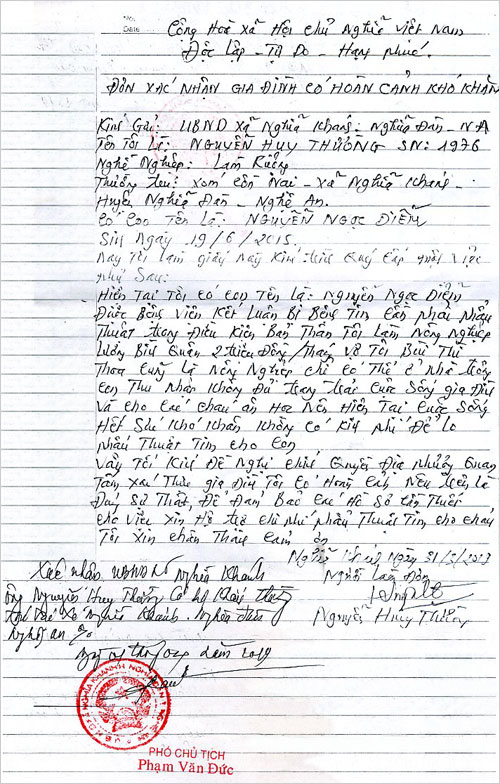 No.
Date
Cộng Hoà xã Hội chủ Nghĩa Việt Nam
Độc Lập - Tự Do - Hạnh phúc.
ĐƠN XÁC NHẬN GIA ĐÌNH CÓ HOÀN CẢNH KHÓ KHĂN
Kính Gửi: UBND Xã Nghĩa Khánh - Nghĩa Đàn - NA
Tên Tôi Là: NGUYỄN HUY THƯỞNG SN: 1976
Nghề Nghiệp: Làm Ruộng
Thường trú: Xóm Cồn - Xã Nghĩa Khánh -
Huyện Nghĩa Đàn - Nghệ An.
Có Con Tên Là: NGUYỄN NGỌC DIỄM
Sinh Ngày 19/6/2015.
Nay Tôi Làm giấy này Kính trình Quý Cấp một việc
như Sau:
Hiện Tại Tôi Có Con Tên Là: Nguyễn Ngọc Diễm
Được Bệnh Viện Kết Luận Bị Bệnh Tim Cần phải phẫu
Thuật trong Điều Kiện Bản Thân Tôi Làm Nông Nghiệp
Lương Bình Quân 2 triệu Đồng/tháng Vợ Tôi Bùi Thị
Thoa Cũng Là Nông Nghiệp chỉ có Thể ở Nhà trông
Con Thu Nhập Không Đủ trang trải Cuộc Sống gia Đình
Và cho các cháu ăn Học Nên Hiện Tại Cuộc Sống
Hết Sức Khó Khăn Không có Kinh phí Để Lo
phẫu Thuật Tim cho Con
Vậy Tôi Kính Đề Nghị chính Quyền Địa phương Quan
Tâm xác Thực gia Đình Tôi Có Hoàn Cảnh Nêu trên Là
Đúng Sự Thật, Để Đảm Bảo Các Hồ Sơ Cần Thiết
cho Việc Xin Hỗ trợ chi phí phẫu Thuật Tim cho cháu
Tôi xin chân Thành Cảm ơn
Nghĩa Khánh Ngày 31/5/
Người Làm Đơn
Nguyễn Huy Thưởng
Xác nhận UBND xã Nghĩa Khánh
Ông Nguyễn Huy Thưởng Có hộ Khẩu thường
trú tại Xã Nghĩa Khánh - Nghĩa Đàn
Nghệ an
PHÓ CHỦ TỊCH
Phạm Văn Đức